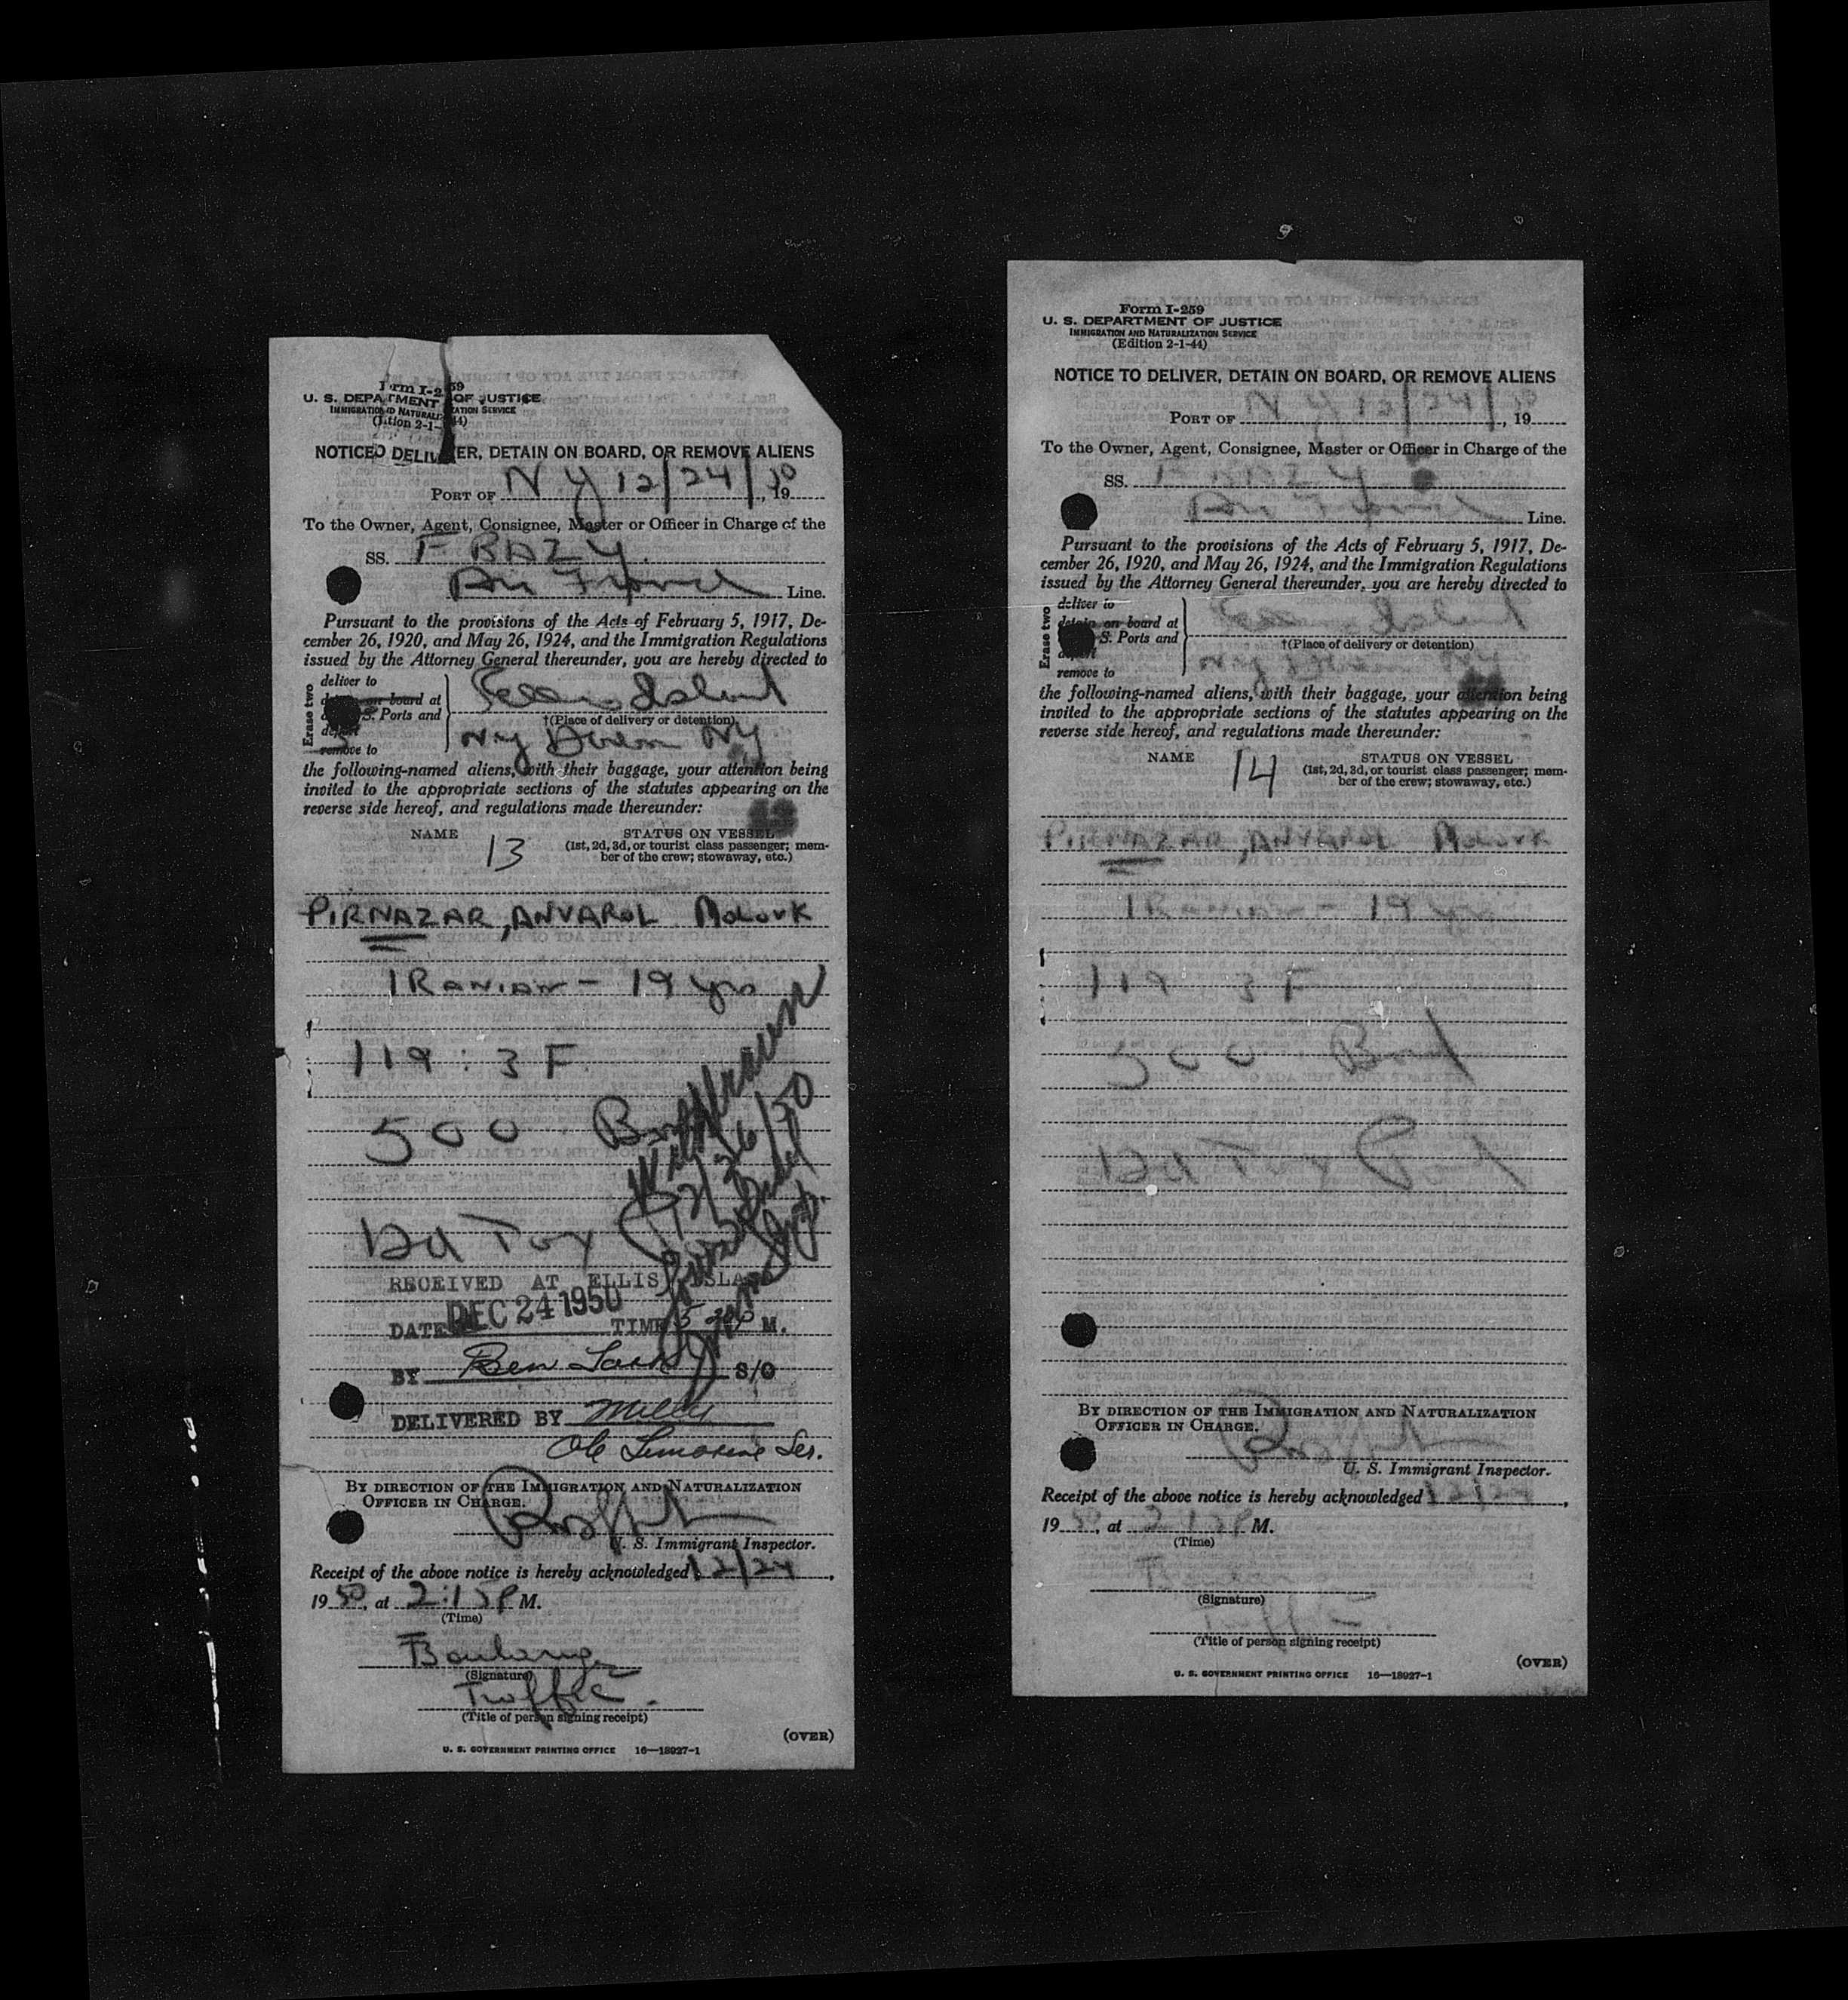 Form I-259
U. S. DEPARTMENT OF JUSTICE
IMMIGRATION AND NATURALIZATION SERVICE
(Edition 2-1-44)
NOTICE TO DELIVER, DETAIN ON BOARD, OR REMOVE ALIENS
PORT OF N Y 12/24/50, 19
To the Owner, Agent, Consignee, Master or Officer in Charge of the
SS. F BAZY.
Air France Line.
Pursuant to the provisions of the Acts of February 5, 1917, De-
cember 26, 1920, and May 26, 1924, and the Immigration Regulations
issued by the Attorney General thereunder, you are hereby directed to
Erase two
deliver to
detain on board at
S. Ports and
depart
remove to
Ellis Island
†(Place of delivery or detention)
NY NY
the following-named aliens, with their baggage, your attention being
invited to the appropriate sections of the statutes appearing on the
reverse side hereof, and regulations made thereunder:
NAME 13 STATUS ON VESSEL
(1st, 2d, 3d, or tourist class passenger; mem-
ber of the crew; stowaway, etc.)
PIRNAZAR, ANVAROL Molouk
IRANIAN - 19 yrs
119 : 3 F
500 Bond
Hd Tax
12/26/50
RECEIVED AT ELLIS ISLAND
DATE DEC 24 1950 TIME 5 20 P M.
BY Ben S/O
DELIVERED BY
Limousine Ser.
BY DIRECTION OF THE IMMIGRATION AND NATURALIZATION
OFFICER IN CHARGE.
U. S. Immigrant Inspector.
Receipt of the above notice is hereby acknowledged 12/24,
19 50, at 2:15 P M.
(Time)
Boulanger
(Signature)
Traffic
(Title of person signing receipt)
(OVER)
U. S. GOVERNMENT PRINTING OFFICE 16—18927-1
Form I-259
U. S. DEPARTMENT OF JUSTICE
IMMIGRATION AND NATURALIZATION SERVICE
(Edition 2-1-44)
NOTICE TO DELIVER, DETAIN ON BOARD, OR REMOVE ALIENS
PORT OF N Y 12/24/50, 19
To the Owner, Agent, Consignee, Master or Officer in Charge of the
SS. F BAZY
Air France Line.
Pursuant to the provisions of the Acts of February 5, 1917, De-
cember 26, 1920, and May 26, 1924, and the Immigration Regulations
issued by the Attorney General thereunder, you are hereby directed to
Erase two
deliver to
detain on board at
S. Ports and
depart
remove to
Ellis Island
†(Place of delivery or detention)
NY NY
the following-named aliens, with their baggage, your attention being
invited to the appropriate sections of the statutes appearing on the
reverse side hereof, and regulations made thereunder:
NAME 14 STATUS ON VESSEL
(1st, 2d, 3d, or tourist class passenger; mem-
ber of the crew; stowaway, etc.)
PIRNAZAR, ANVAROL Molouk
IRanian - 19 yrs
119 : 3 F
500 Bond
Hd Tax
BY DIRECTION OF THE IMMIGRATION AND NATURALIZATION
OFFICER IN CHARGE.
U. S. Immigrant Inspector.
Receipt of the above notice is hereby acknowledged 12/24,
19 50, at 2:15 P M.
(Time)
(Signature)
(Title of person signing receipt)
(OVER)
U. S. GOVERNMENT PRINTING OFFICE 16—18927-1